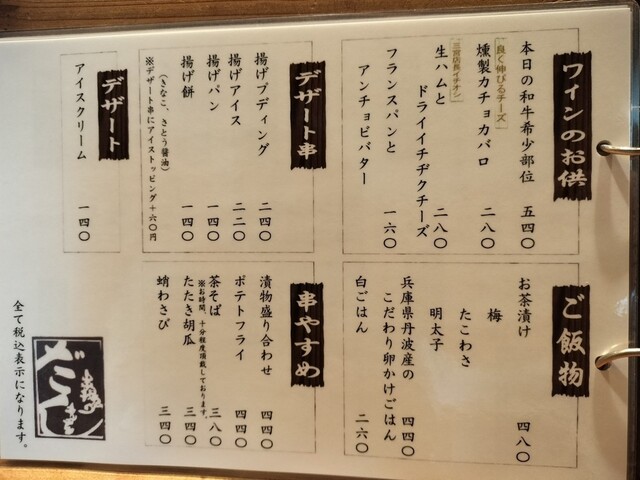 ワインのお供
本日の和牛希少部位 五四〇
良く伸びるチーズ
燻製カチョカバロ 二八〇
三宮店長イチオシ
生ハムと
ドライイチヂクチーズ 二八〇
フランスパンと
アンチョビバター 一六〇
デザート串
揚げプディング 二四〇
揚げアイス 二二〇
揚げパン 一四〇
揚げ餅 一四〇
(きなこ、さとう醤油)
※デザート串にアイストッピング+六〇円
デザート
アイスクリーム 一四〇
ご飯物
お茶漬け 四八〇
梅
たこわさ
明太子
兵庫県丹波産の
こだわり卵かけごはん 四四〇
白ごはん 二六〇
串やすめ
漬物盛り合わせ 四四〇
ポテトフライ 四四〇
茶そば 三八〇
※お時間、十分程度頂戴しております。
たたき胡瓜 三四〇
蛸わさび 三四〇
全て税込表示になります。